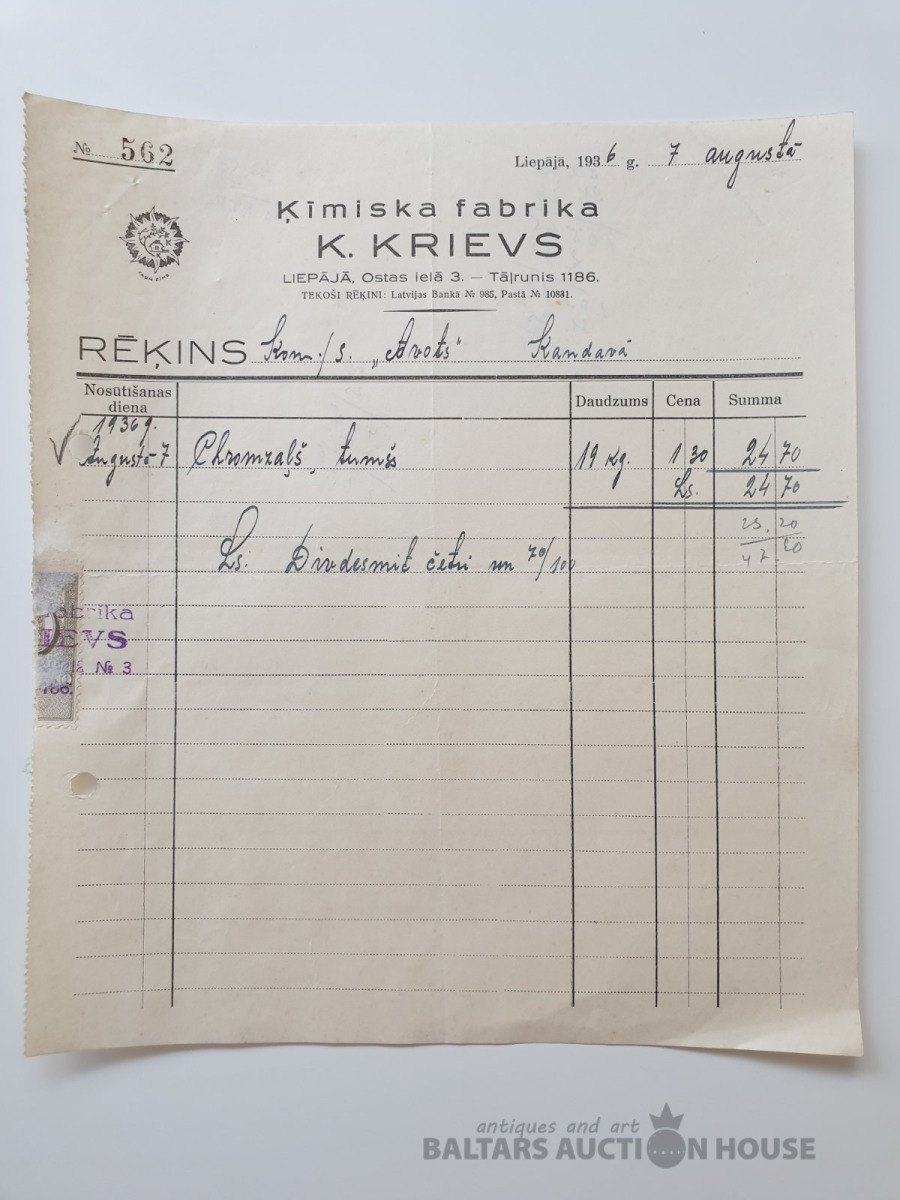 № 562
Liepājā, 1936 g. 7 augustā
Ķīmiska fabrika
K. KRIEVS
LIEPĀJĀ, Ostas ielā 3. — Tāļrunis 1186.
TEKOŠI RĒĶINI: Latvijas Bankā № 985, Pastā № 10831.
FABR. ZĪME
RĒĶINS Kom./s. „Avots" Kandavā
Nosūtīšanas diena Daudzums Cena Summa
1936g.
Augustā 7 Chromzaļš, tumšs 19 kg. 1 30 24 70
Ls. 24 70
23,20
47.90
Ls. Divdesmit četri un 70/100
fabrika
IEVS
№ 3
antiques and art
BALTARS AUCTION HOUSE